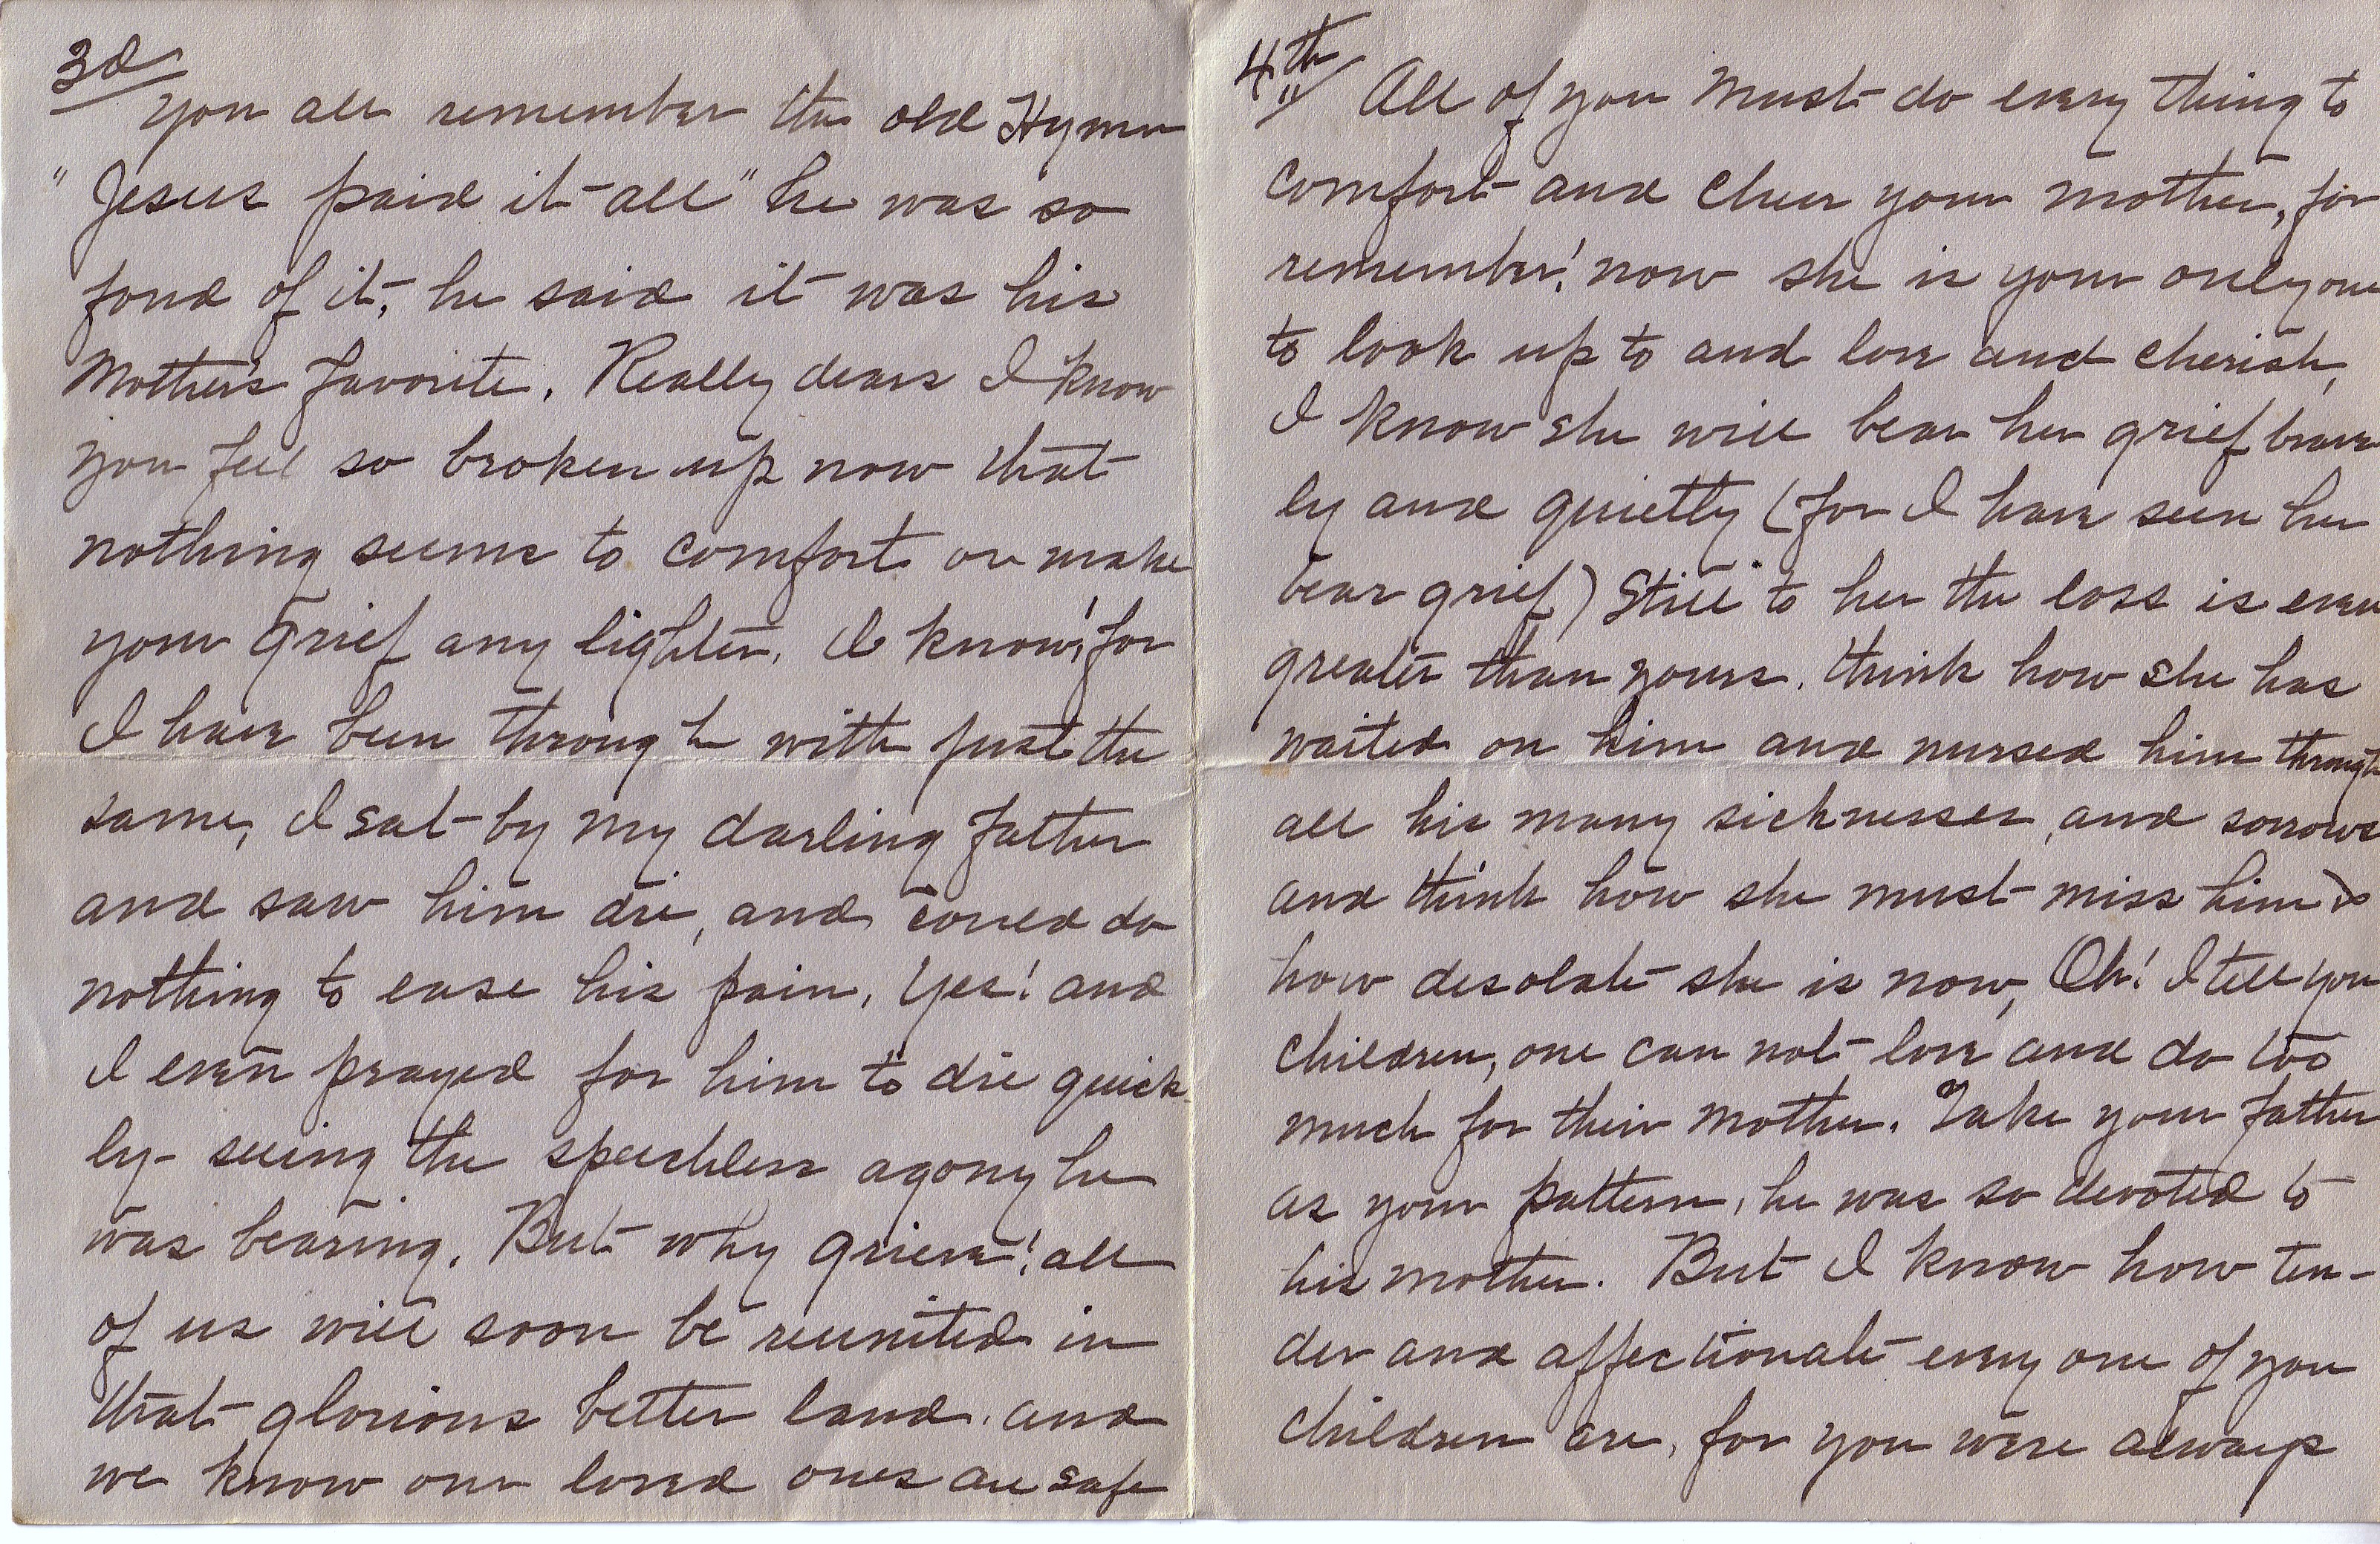 3d
you all remember the old Hymn
"Jesus paid it all" he was so
fond of it, he said it was his
Mother's favorite. Really dears I know
you feel so broken up now that
nothing seems to comfort or make
your grief any lighter. I know! for
I have been through with just the
same, I sat by my darling father
and saw him die, and could do
nothing to ease his pain, Yes! and
I even prayed for him to die quick
ly- seeing the speechless agony he
was bearing. But why grieve! all
of us will soon be reunited in
that glorious better land. and
we know our loved ones are safe
4th All of you must do every thing to
comfort and cheer your mother, for
remember! now she is your only one
to look up to and love and cherish,
I know she will bear her grief brave
ly and quietly (for I have seen her
bear grief) Still to her the loss is even
greater than yours. think how she has
waited on him and nursed him through
all his many sicknesses, and sorrows
and think how she must miss him &
how desolate she is now, Oh! I tell you
children, one can not love and do too
much for their mother. Take your father
as your pattern, he was so devoted to
his mother. But I know how ten-
der and affectionate every one of you
children are, for you were always